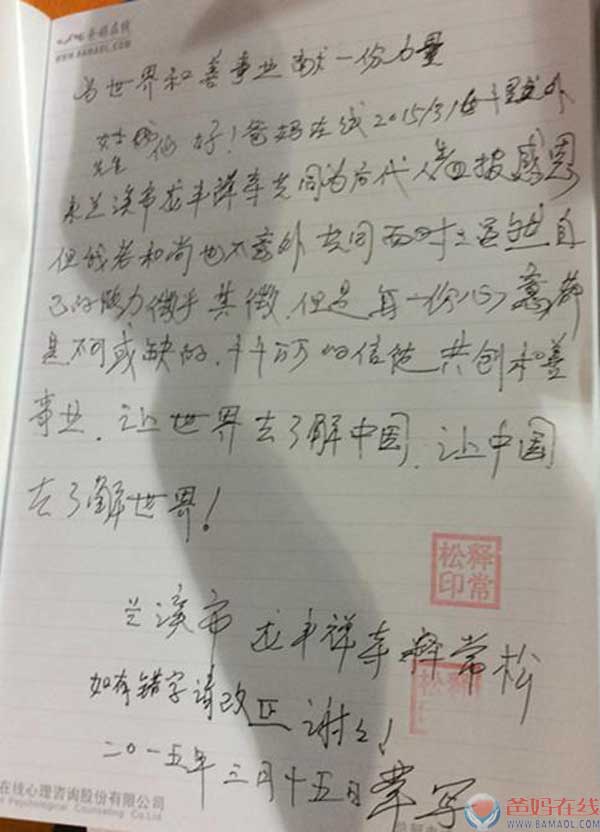 爸妈在线
WWW.BAMAOL.COM
为世界和善事业献一份力量
女士 先生 你好！爸妈在线2015/3/16
来兰溪市龙丰祥寺共同为后代人 感恩
但我老和尚也不意外共同面对之 自
己的能力微乎其微.但是每一份心意都
是不可或缺的.千千万万的信徒共创和善
事业.让世界去了解中国.让中国
去了解世界！
释常
松印
兰溪市龙丰祥寺释常松
如有错字请改正谢谢！
二〇一五年三月十五日
在线心理咨询股份有限公司
Psychological Counseling Co.Ltd
爸妈在线
WWW.BAMAOL.COM